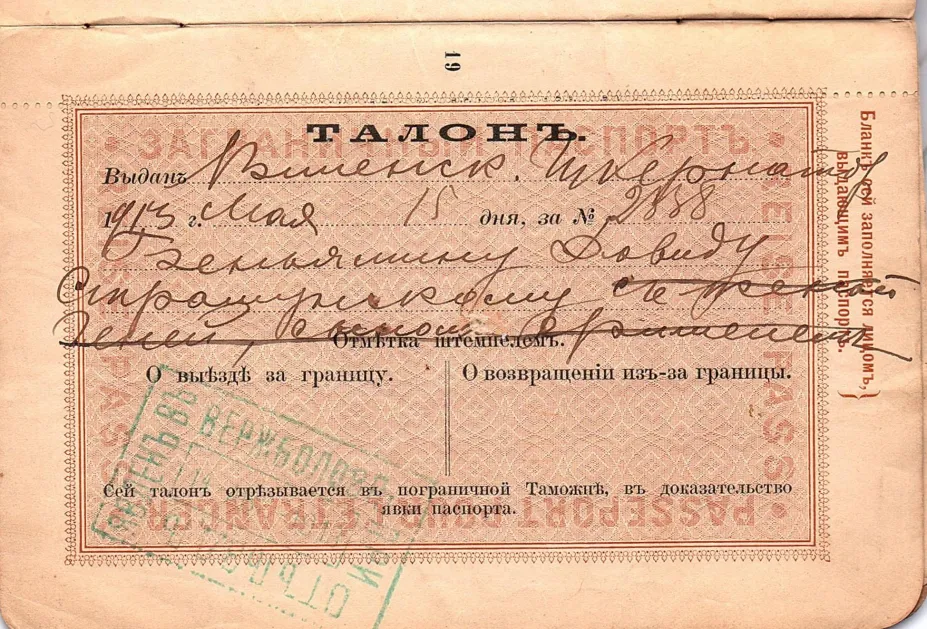 19
ТАЛОНЪ.
Выданъ Виленск.
1913 г. Мая 15 дня, за № 2888
Беньямину Довиду
Страшунскому съ женой
Геней, сыном
Отмѣтка штемпелемъ.
О выѣздѣ за границу.
О возвращеніи изъ-за границы.
Сей талонъ отрѣзывается въ пограничной Таможнѣ, въ доказательство
явки паспорта.
Бланкъ сей заполняется лицомъ,
выдающимъ паспортъ.
PASSEPORT POUR L'ETRANGER
REISE PASS
REISE PASS
ВЕРЖБОЛОВО